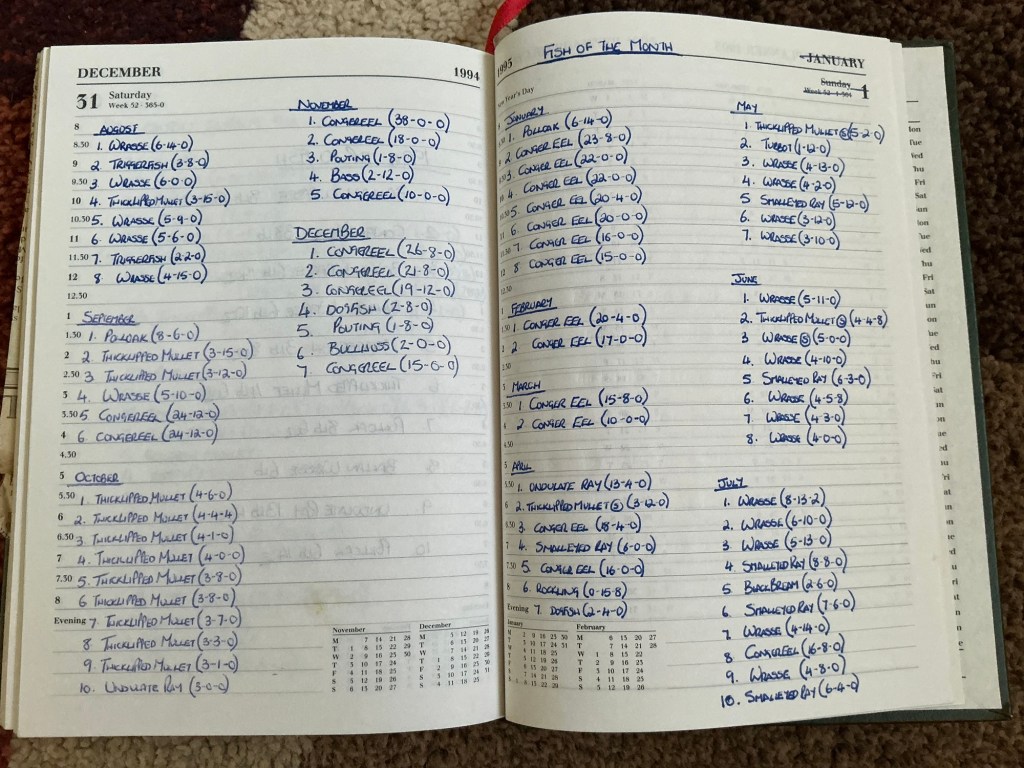 DECEMBER 1994
31 Saturday
Week 52 · 365-0
AUGUST
1. WRASSE (6-14-0)
2. TRIGGERFISH (3-8-0)
3. WRASSE (6-0-0)
4. THICKLIPPED MULLET (3-15-0)
5. WRASSE (5-9-0)
6. WRASSE (5-6-0)
7. TRIGGERFISH (2-2-0)
8. WRASSE (4-15-0)
SEPEMBER
1. POLLOAK (8-6-0)
2. THICKLIPPED MULLET (3-15-0)
3 THICKLIPPED MULLET (3-12-0)
4. WRASSE (5-10-0)
5 CONGEREEL (24-12-0)
6. CONGEREEL (24-12-0)
OCTOBER
1. THICKLIPPED MULLET (4-6-0)
2. THICKLIPPED MULLET (4-4-4)
3 THICKLIPPED MULLET (4-1-0)
4. THICKLIPPED MULLET (4-0-0)
5. THICKLIPPED MULLET (3-8-0)
6 THICKLIPPED MULLET (3-8-0)
7. THICKLIPPED MULLET (3-7-0)
8 THICKLIPPED MULLET (3-3-0)
9. THICKLIPPED MULLET (3-1-0)
10. UNDULATE RAY (3-0-0)
NOVEMBER
1. CONGEREEL (38-0-0)
2. CONGEREEL (18-0-0)
3. POUTING (1-8-0)
4. BASS (2-12-0)
5. CONGEREEL (10-0-0)
DECEMBER
1. CONGEREEL (26-8-0)
2. CONGEREEL (21-8-0)
3. CONGEREEL (19-12-0)
4. DOGFISH (2-8-0)
5. POUTING (1-8-0)
6. BULLHUSS (2-0-0)
7. CONGEREEL (15-6-0)
8
8.30
9
9.30
10
10.30
11
11.30
12
12.30
1
1.30
2
2.30
3
3.30
4
4.30
5
5.30
6
6.30
7
7.30
8
Evening
November December
1995 FISH OF THE MONTH JANUARY
Sunday 1
Week 52 · 1-364
New Year's Day
JANUARY
1. POLLOAK (6-14-0)
2 CONGER EEL (23-8-0)
3. CONGER EEL (22-0-0)
4. CONGER EEL (22-0-0)
5 CONGER EEL (20-4-0)
6. CONGER EEL (20-0-0)
7 CONGER EEL (16-0-0)
8 CONGER EEL (15-0-0)
FEBRUARY
1 CONGER EEL (20-4-0)
2 CONGER EEL (17-0-0)
MARCH
1 CONGER EEL (15-8-0)
2 CONGER EEL (10-0-0)
APRIL
1. UNDULATE RAY (13-4-0)
2. THICKLIPPED MULLET Ⓢ (3-12-0)
3. CONGER EEL (18-4-0)
4. SMALLEYED RAY (6-0-0)
5. CONGER EEL (16-0-0)
6. ROCKLING (0-15-8)
Evening 7. DOGFISH (2-4-0)
January February
MAY
1. THICKLIPPED MULLET Ⓢ (5-2-0)
2. TURBOT (1-12-0)
3. WRASSE (4-13-0)
4. WRASSE (4-2-0)
5 SMALLEYED RAY (5-12-0)
6. WRASSE (3-12-0)
7. WRASSE (3-10-0)
JUNE
1. WRASSE (5-11-0)
2. THICKLIPPED MULLET Ⓢ (4-4-8)
3 WRASSE Ⓢ (5-0-0)
4. WRASSE (4-10-0)
5 SMALLEYED RAY (6-3-0)
6. WRASSE (4-5-8)
7. WRASSE (4-3-0)
8. WRASSE (4-0-0)
JULY
1. WRASSE (8-13-2)
2. WRASSE (6-10-0)
3. WRASSE (5-13-0)
4. SMALLEYED RAY (8-8-0)
5 BLACKBREAM (2-6-0)
6. SMALLEYED RAY (7-6-0)
7. WRASSE (4-14-0)
8 CONGEREEL (16-8-0)
9. WRASSE (4-8-0)
10. SMALLEYED RAY (6-4-0)